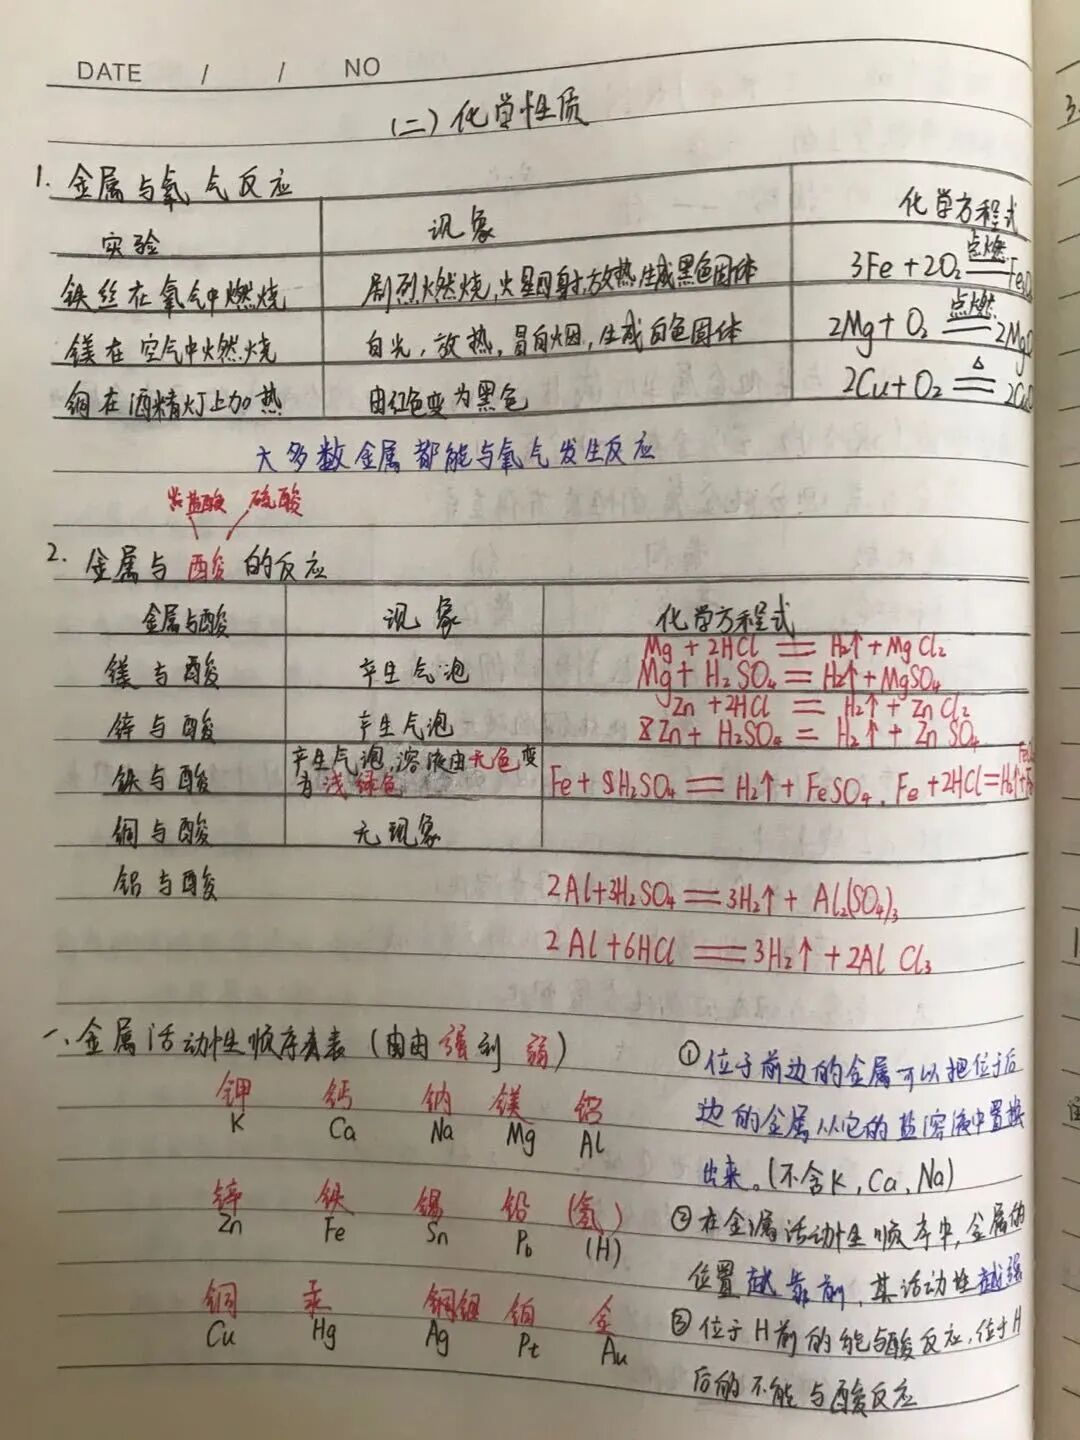 DATE / / NO
(二)化学性质
1. 金属与氧气反应
实验 现象 化学方程式
铁丝在氧气中燃烧 剧烈燃烧,火星四射,放热,生成黑色固体 3Fe+2O₂ 点燃
镁在空气中燃烧 白光,放热,冒白烟,生成白色固体 2Mg+O₂ 点燃 2MgO
铜在酒精灯上加热 由红色变为黑色 2Cu+O₂ △ 2CuO
大多数金属都能与氧气发生反应
盐酸 硫酸
2. 金属与酸的反应
金属与酸 现象 化学方程式
镁与酸 产生气泡 Mg+2HCl══H₂↑+MgCl₂
Mg+H₂SO₄══H₂↑+MgSO₄
锌与酸 产生气泡 Zn+2HCl═H₂↑+ZnCl₂
Zn+H₂SO₄═H₂↑+ZnSO₄
铁与酸 产生气泡,溶液由无色变
为浅绿色 Fe+H₂SO₄══H₂↑+FeSO₄. Fe+2HCl=H₂↑+
铜与酸 无现象
铝与酸 2Al+3H₂SO₄══3H₂↑+Al₂(SO₄)₃
2Al+6HCl══3H₂↑+2AlCl₃
一、金属活动性顺序表(由强到弱)
钾 钙 钠 镁 铝
K Ca Na Mg Al
锌 铁 锡 铅 (氢)
Zn Fe Sn Pb (H)
铜 汞 银 铂 金
Cu Hg Ag Pt Au
①位于前边的金属可以把位于后
边的金属从它的盐溶液中置换
出来。(不含K,Ca,Na)
②在金属活动性顺序中,金属的
位置越靠前,其活动性越强
③位于H前的能与酸反应,位于H
后的不能与酸反应